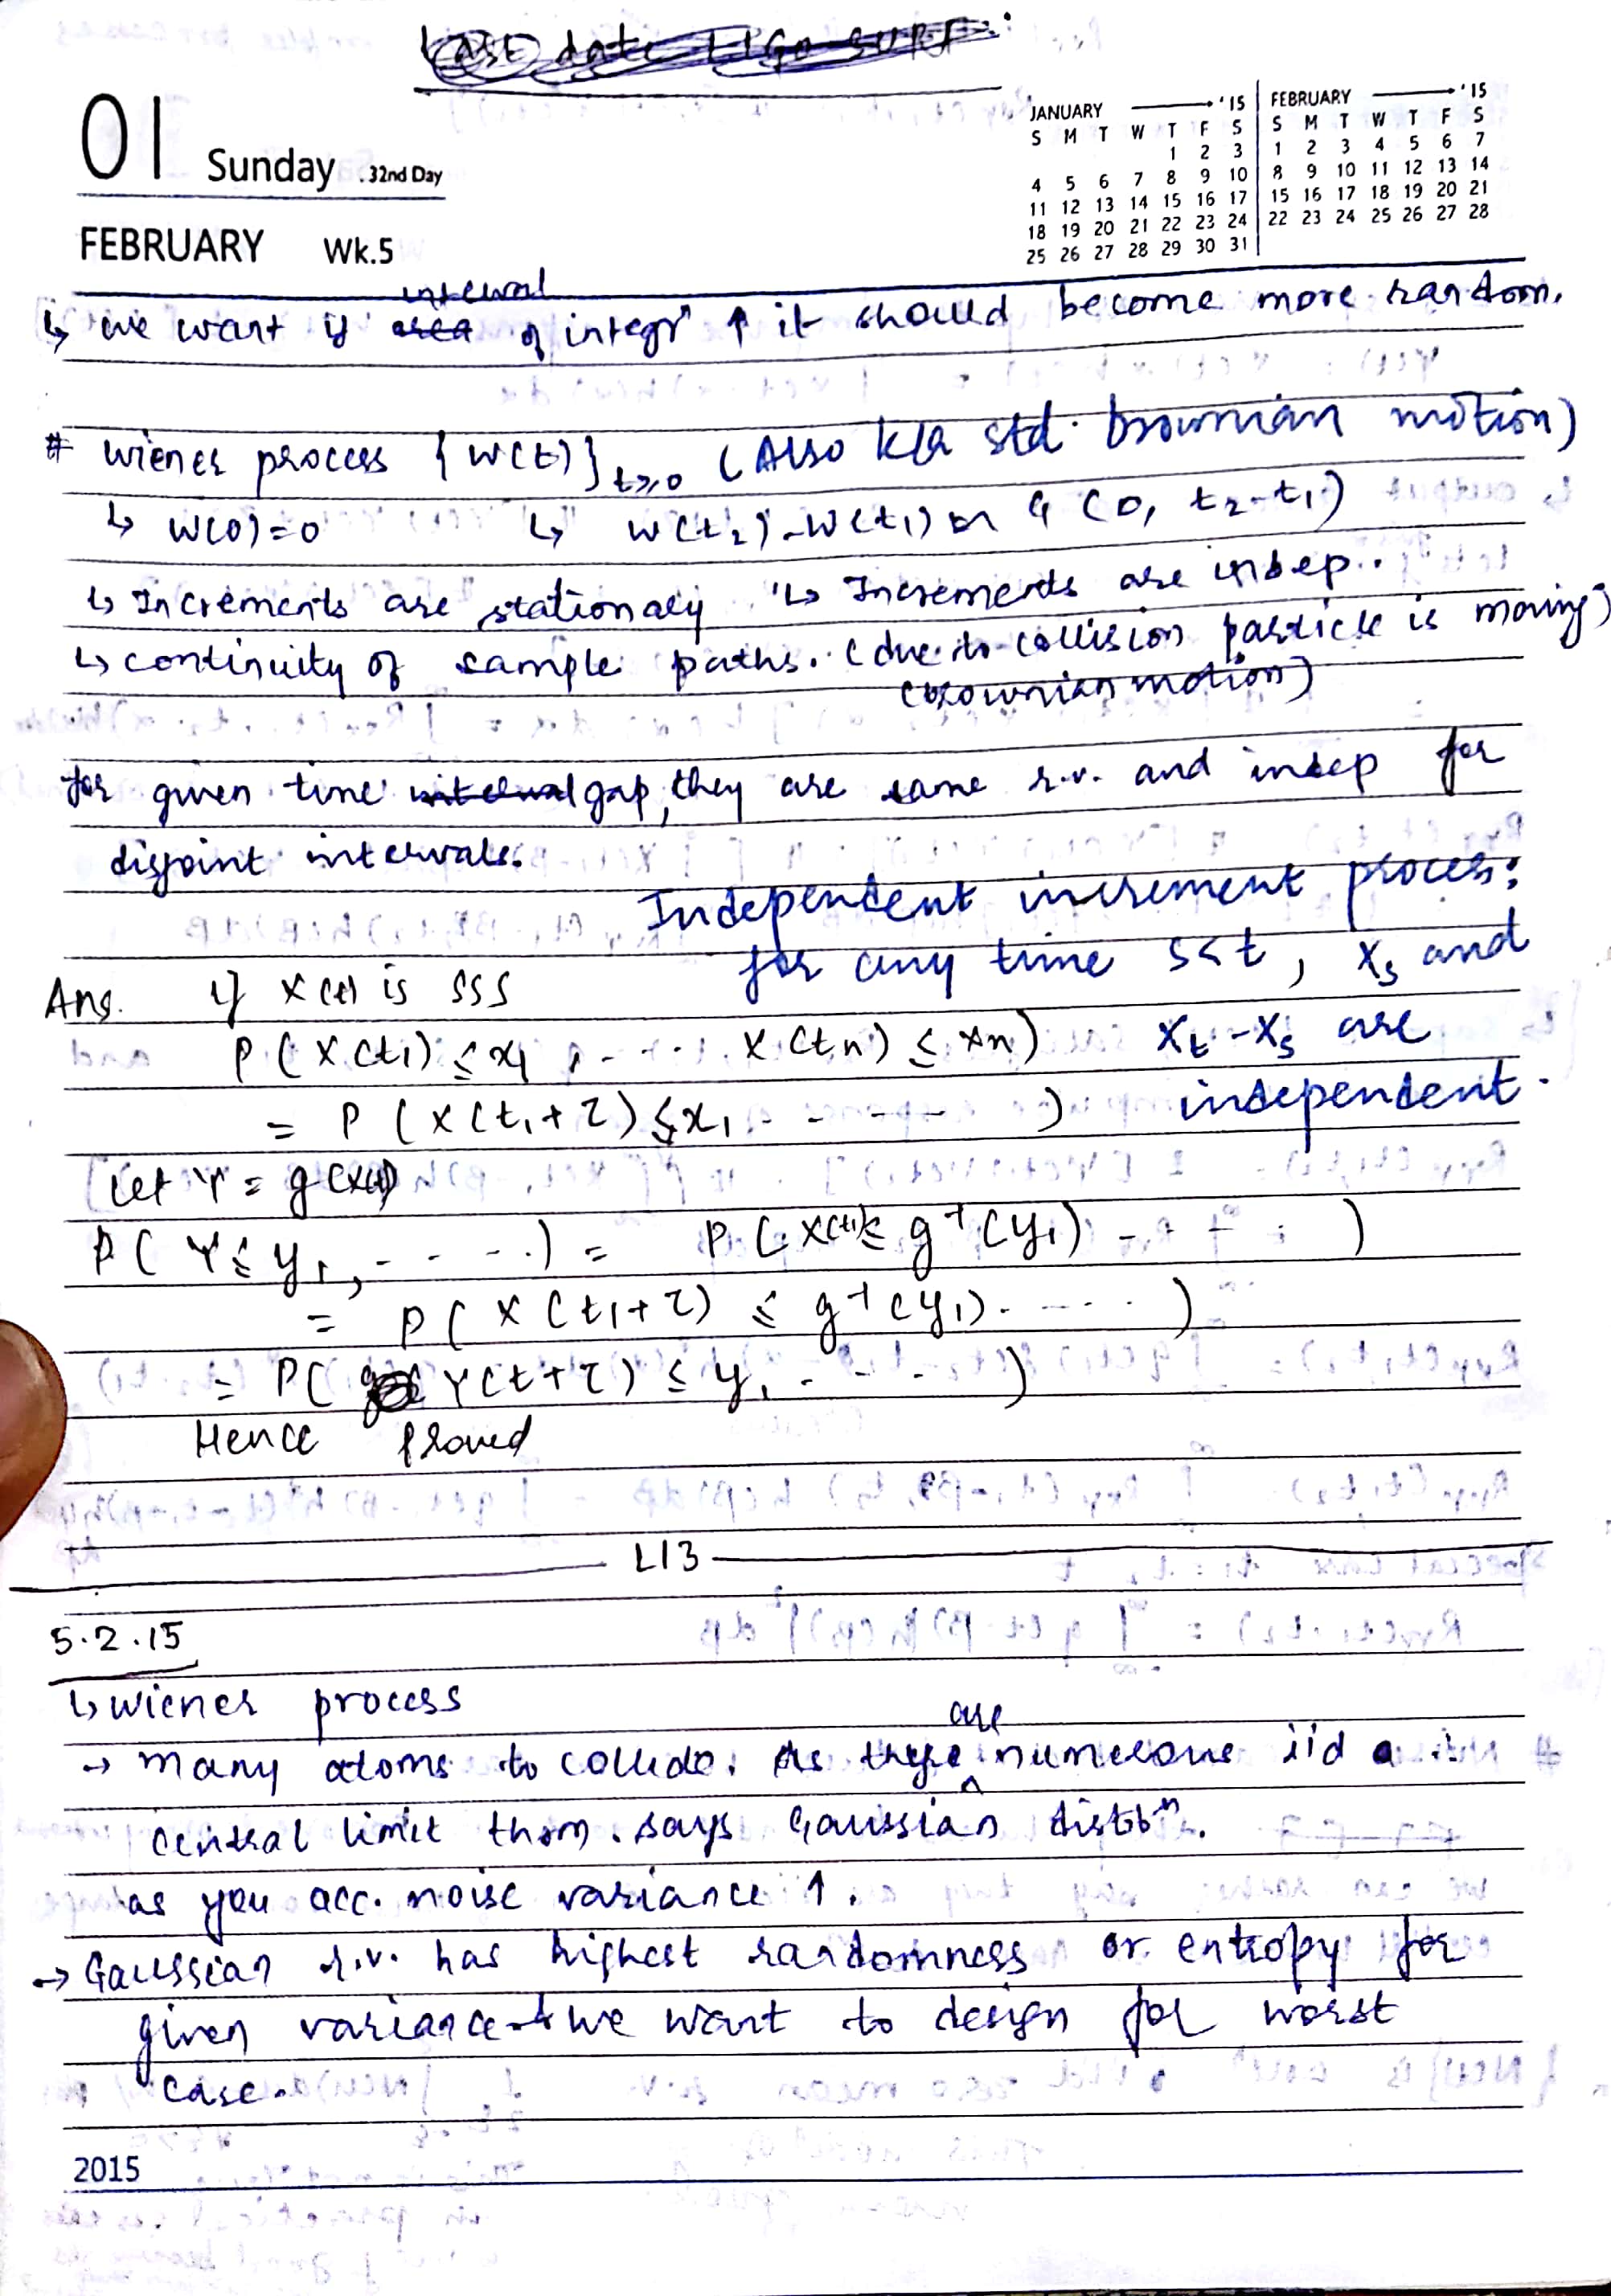 Last date LIGO SURF:
01 Sunday . 32nd Day
FEBRUARY Wk.5
JANUARY '15
S M T W T F S
1 2 3
4 5 6 7 8 9 10
11 12 13 14 15 16 17
18 19 20 21 22 23 24
25 26 27 28 29 30 31
FEBRUARY '15
S M T W T F S
1 2 3 4 5 6 7
8 9 10 11 12 13 14
15 16 17 18 19 20 21
22 23 24 25 26 27 28
interval
↳ we want if area of integrⁿ ↑ it should become more random.
# wiener process {W(t)}t≥0 (Also k/a std. brownian motion)
↳ W(0)=0 ↳ W(t2)-W(t1) ~ G (0, t2-t1)
↳ Increments are stationary ↳ Increments are indep..
↳ continuity of sample paths. (due to collision particle is moving)
(brownian motion)
for given time interval gap, they are same r.v. and indep for
disjoint intervals.
Independent increment process:
for any time s<t, Xs and
Xt-Xs are
independent.
Ans. if X(t) is SSS
P(X(t1) ≤ x1, - - ... X(tn) ≤ xn)
= P(X(t1+τ) ≤ x1 - - - - - )
Let Y = g(X(t))
P(Y ≤ y1, - - - - .) = P(X(t1) ≤ g⁻¹(y1) - - - - )
= P(X(t1+τ) ≤ g⁻¹(y1) - ---- · )
= P(Y(t+τ) ≤ y1 - - - - )
Hence proved
L13
5.2.15
↳ wiener process
are
→ many atoms to collide. As these ^ numerous iid
central limit thom. says Gaussian distbⁿ.
as you acc. noise variance ↑.
→ Gaussian r.v. has highest randomness or entropy for
given variance & we want to design for worst
case.
2015